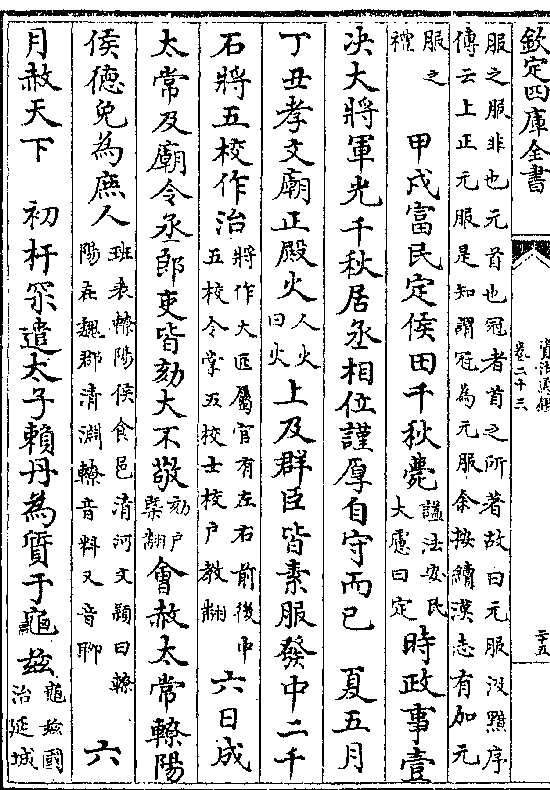 欽定四庫全書
資治通鑑
卷二十三
二十五
服之服非也元首也冠者首之所著故曰元服汲黯序
傳云上正元服是知謂冠為元服余按續漢志有加元
服之
禮
甲戌富民定侯田千秋薨
諡法安民
大慮曰定
時政事壹
决大將軍光千秋居丞相位謹厚自守而已 夏五月
丁丑孝文廟正殿火
人火
曰火
上及群臣皆素服發中二千
石將五校作治
將作大匠屬官有左右前後中
五校令掌五校士校户教翻
六日成
太常及廟令丞郎吏皆劾大不敬
劾户
槩翻
會赦太常轑陽
侯德免為庶人
班表轑陽侯食邑清河文穎曰轑
陽在魏郡清淵轑音料又音聊
六
月赦天下 初杅罙遣太子賴丹為質于龜兹
龜兹國
治延城